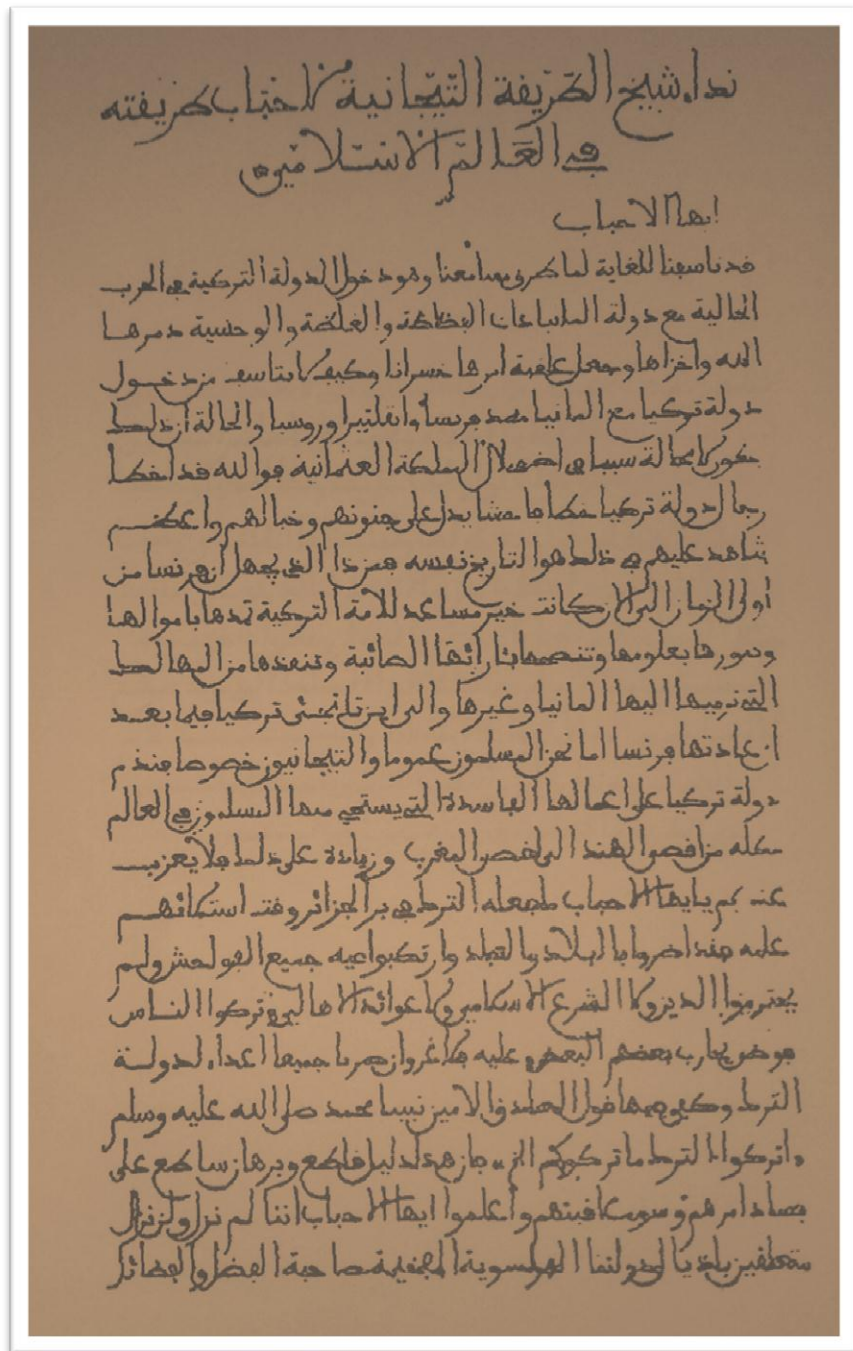 نداء شيخ الطريقة التيجانية لاحباب طريقته
في العالم الاسلامي
ايها الاحباب
قد تاسفنا للغاية لما طرق مسامعنا وهو دخول الدولة التركية في الحرب
الحالية مع دولة المانيا ذات الفظاظة والغلظة والوحشية دمرها
الله واخزاها وجعل عاقبة امرها خسرانا وكيف لا نتاسف من دخول
دولة تركيا مع المانيا ضد فرنسا وانقلتيرا وروسيا والحالة ان ذلك
يكون لا محالة سببا في اضمحلال السلطة العثمانية فوالله قد اخطا
رجال دولة تركيا خطأ فاحشا يدل على جنونهم وخبالهم واعظم
شاهد عليهم في ذلك هو التاريخ نفسه فمن ذا الذي يجهل ان فرنسا من
اول الزمان الى الان كانت خير مساعد للامة التركية تمدها باموالها
وتنورها بعلومها وتنصحها بآرائها الصائبة وتنقذها من المهالك
التي ترميها اليها المانيا وغيرها والى اين تلتجئ تركيا فيما بعد
ان عادتها فرنسا اما نحن المسلمون عموما والتيجانيون خصوصا فنذم
دولة تركيا على اعمالها الفاسدة التي يستحي منها المسلمون في العالم
كله من اقصى الهند الى اقصى المغرب وزيادة على ذلك فلا يعزب
عنكم يايها الاحباب ما فعله الترك في بر الجزائر وقت استلائهم
عليه فقد اضروا بالبلاد والعباد وارتكبوا فيه جميع الفواحش ولم
يحترموا الدين ولا الشرع الاسلامي ولا عوائد الاهالي وتركوا الناس
فوضى يحارب بعضهم البعض وعليه فلا غرو ان صرنا جميعا اعداء لدولة
الترك وكفى فيها قول الصادق الامين نبينا محمد صلى الله عليه وسلم
واتركوا الترك ما تركوكم الخ فان هذا دليل قاطع وبرهان ساطع على
فساد امرهم وسوء عاقبتهم واعلموا ايها الاحباب اننا لم نزل ولن نزال
متعلقين باذيال دولتنا الفرنسوية الفخيمة صاحبة الفضل والفضائل